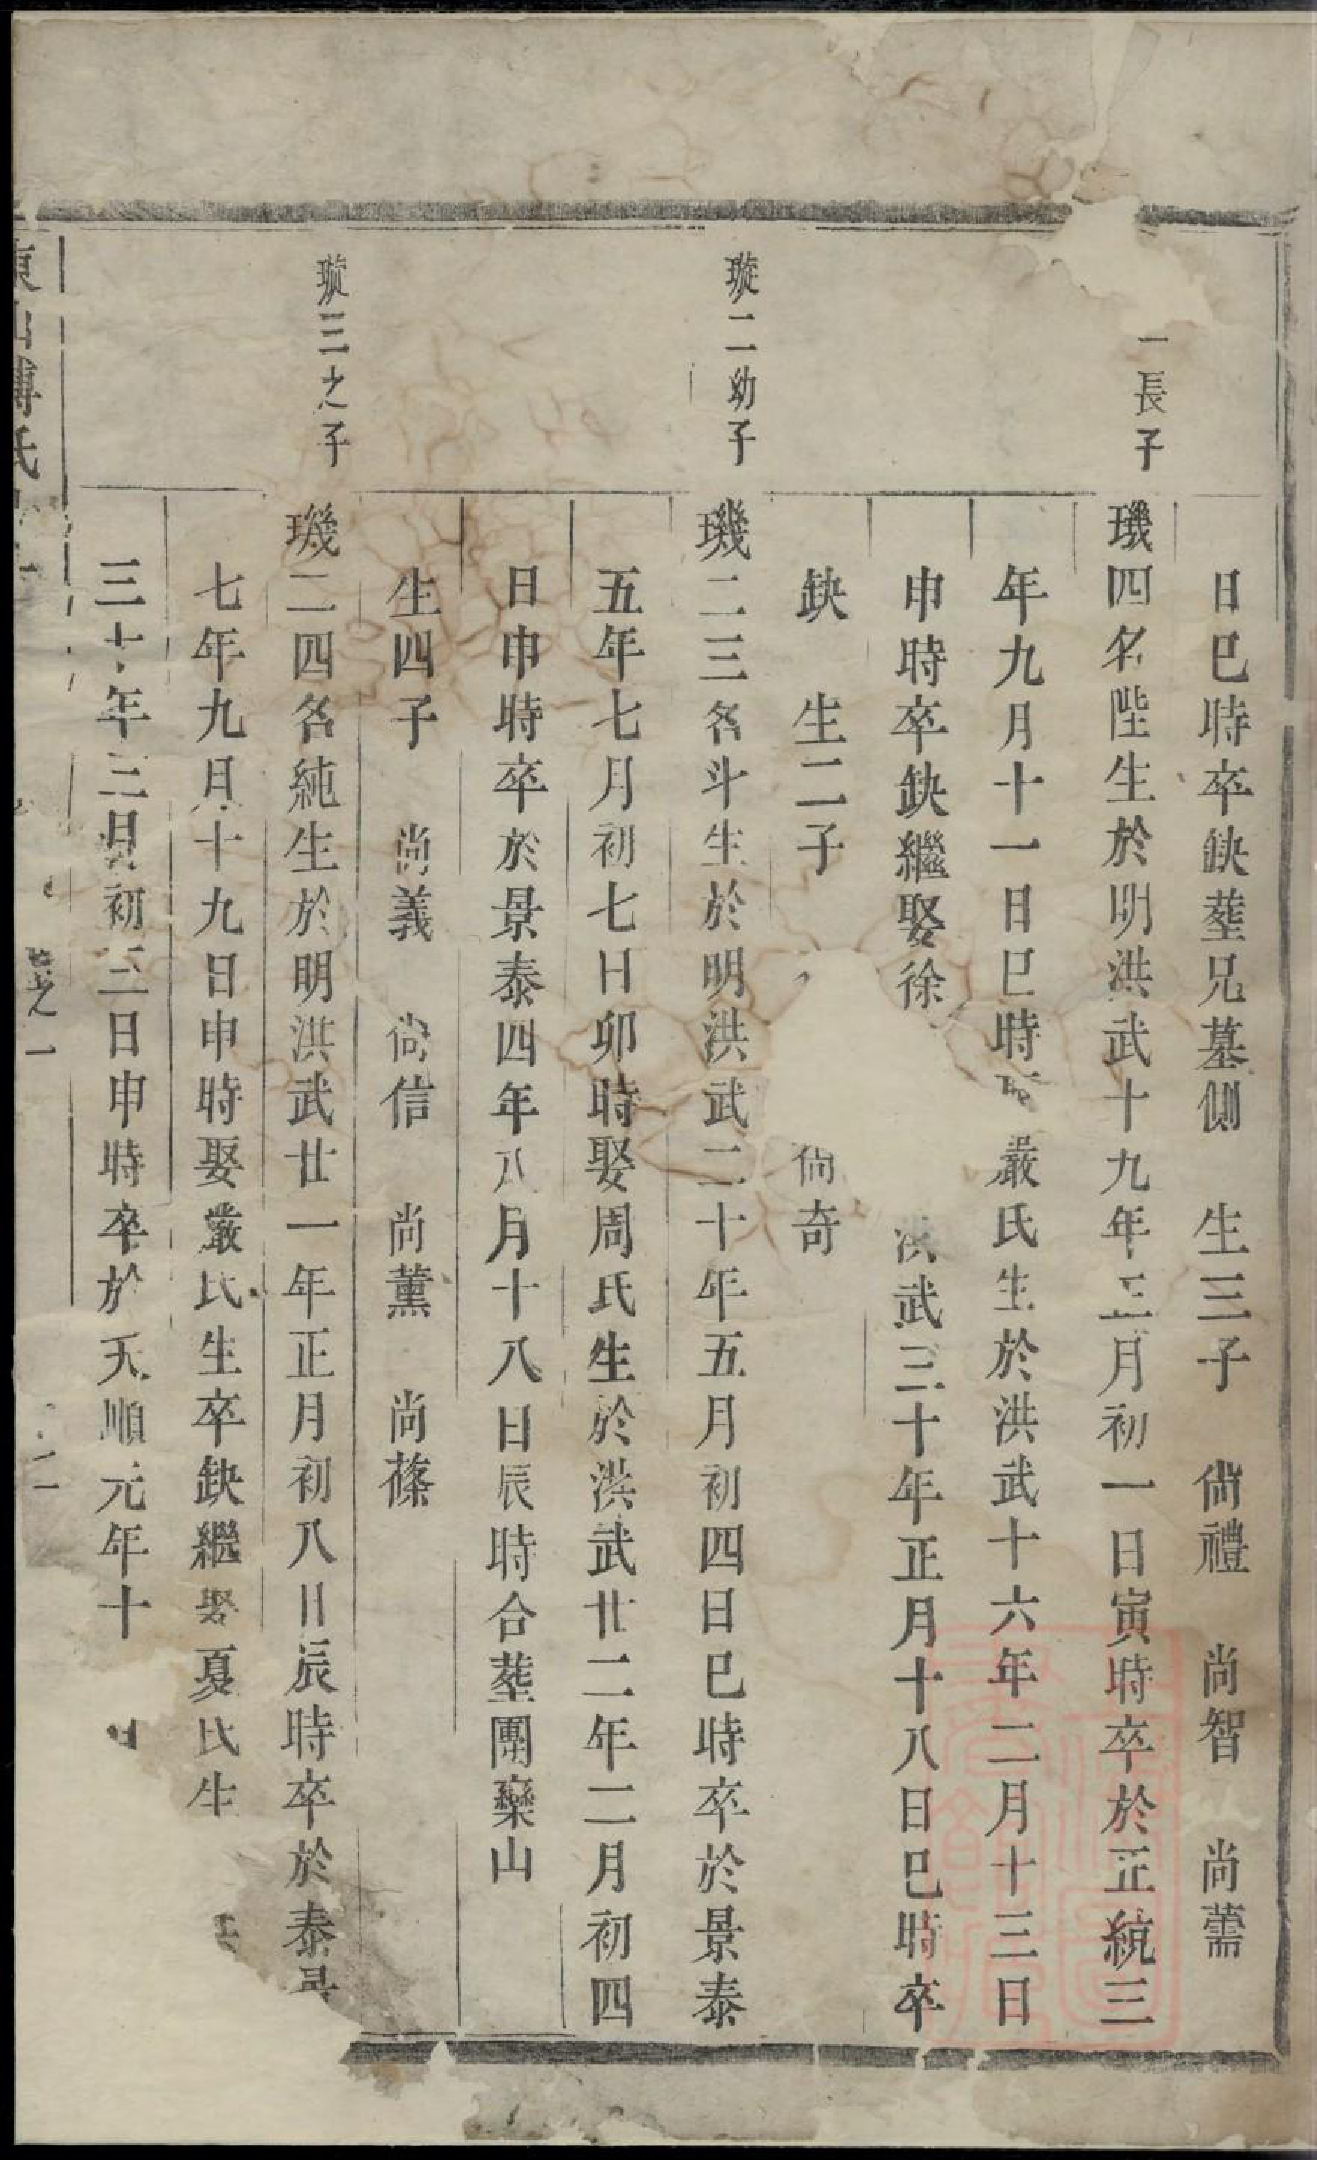 日巳時卒缺塟兄墓側 生三子 尙禮 尚智 尚薷
一長子
璣四名陛生於明洪武十九年三月初一日寅時卒於正統三
年九月十一日巳時 嚴氏生於洪武十六年二月十三日
申時卒缺繼娶徐 洪武三十年正月十八日巳時卒
缺 生二子 尙奇
璇二幼子
璣二三名斗生於明洪武二十年五月初四日巳時卒於景泰
五年七月初七日卯時娶周氏生於洪武廿二年二月初四
日申時卒於景泰四年八月十八日辰時合塟團欒山
生四子 尚義 尙信 尚薰 尚蓧
璇三之子
璣二四名純生於明洪武廿一年正月初八日辰時卒於泰
七年九月十九日申時娶嚴氏生卒缺繼娶夏氏生
三十年三月初三日申時卒於天順元年十
東山傅氏
卷之一